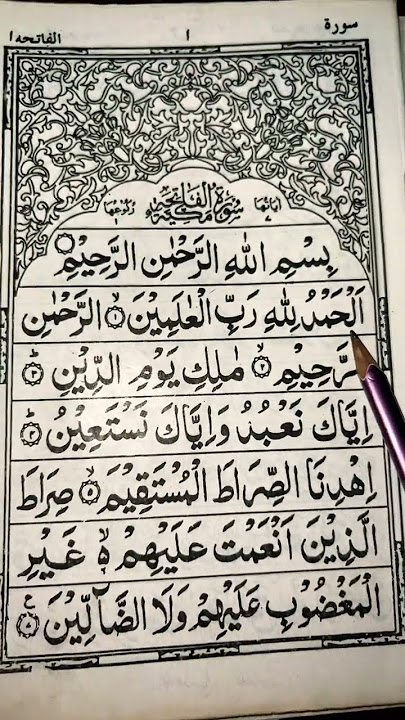 سورة ١ الفاتحه ١
اٰیاتها سُوْرَةُ الْفَاتِحَةِ مَكِّيَّةٌ رُكُوْعُهَا
بِسْمِ اللهِ الرَّحْمٰنِ الرَّحِيْمِ
اَلْحَمْدُ لِلّٰهِ رَبِّ الْعٰلَمِيْنَ ۙ﴿۱﴾ الرَّحْمٰنِ
الرَّحِيْمِ ۙ﴿۲﴾ مٰلِكِ يَوْمِ الدِّيْنِ ؕ﴿۳﴾
اِيَّاكَ نَعْبُدُ وَاِيَّاكَ نَسْتَعِيْنُ ؕ﴿۴﴾
اِهْدِنَا الصِّرَاطَ الْمُسْتَقِيْمَ ۙ﴿۵﴾ صِرَاطَ
الَّذِيْنَ اَنْعَمْتَ عَلَيْهِمْ ۙ۬ غَيْرِ
الْمَغْضُوْبِ عَلَيْهِمْ وَلَا الضَّآلِّيْنَ ﴿۷﴾